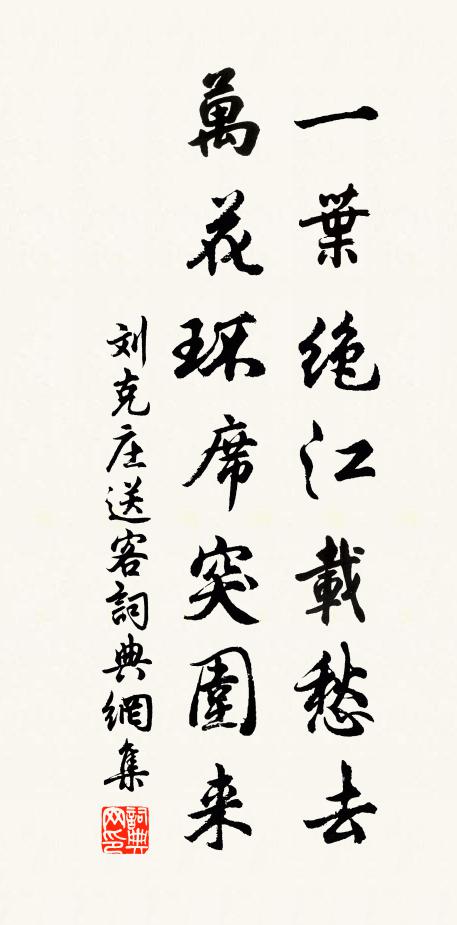 一葉绝江載愁去
萬花环席突圍来
刘克庄送客詞典網集
詞典网印